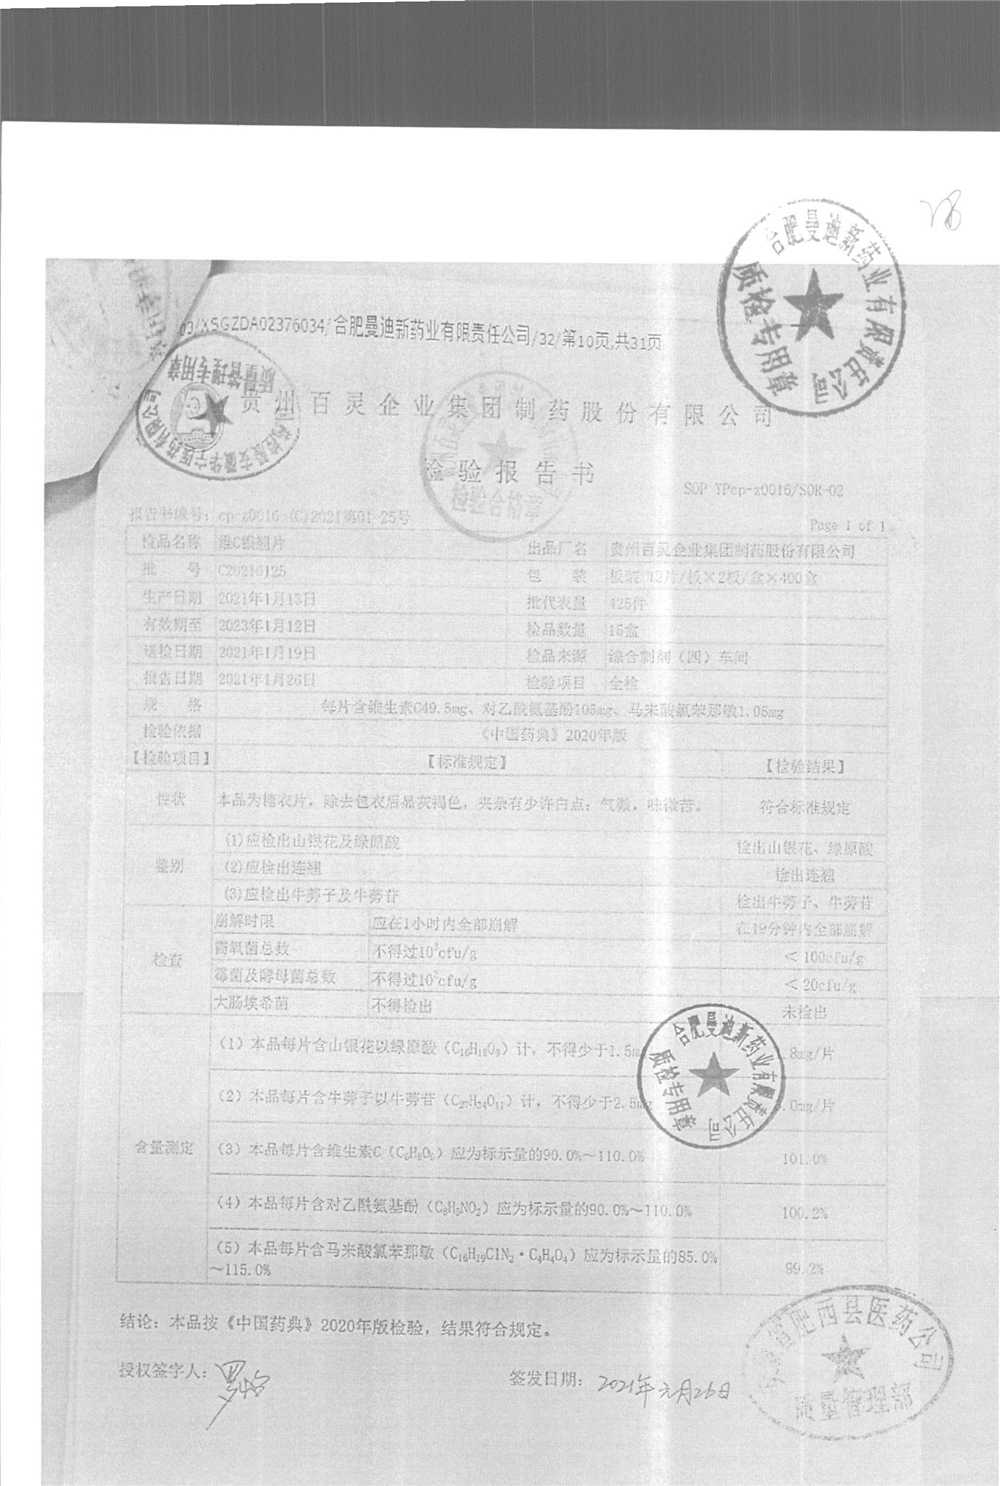 28
合肥曼迪新药业有限责任公司
质检专用章
03/XSGZDA02376034/合肥曼迪新药业有限责任公司/32/第10页,共31页
质量管理专用章
贵州百灵企业集团制药股份有限公司
检验报告书
SOP YPcp-z0016/SOR-02
报告书编号：cp-z0016（C）2021第01-25号
Page 1 of 1
检品名称 维C银翘片 出品厂名 贵州百灵企业集团制药股份有限公司
批 号 C20210125 包 装 板装 12片/板×2板/盒×400盒
生产日期 2021年1月13日 批代表量 425件
有效期至 2023年1月12日 检品数量 15盒
送检日期 2021年1月19日 检品来源 综合制剂（四）车间
报告日期 2021年1月26日 检验项目 全检
规 格 每片含维生素C49.5mg、对乙酰氨基酚105mg、马来酸氯苯那敏1.05mg
检验依据 《中国药典》2020年版
【检验项目】 【标准规定】 【检验结果】
性状 本品为糖衣片，除去包衣后显灰褐色，夹杂有少许白点；气微，味微苦。 符合标准规定
鉴别 (1)应检出山银花及绿原酸 检出山银花、绿原酸
(2)应检出连翘 检出连翘
(3)应检出牛蒡子及牛蒡苷 检出牛蒡子、牛蒡苷
检查 崩解时限 应在1小时内全部崩解 在19分钟内全部崩解
需氧菌总数 不得过10³cfu/g ＜100cfu/g
霉菌及酵母菌总数 不得过10²cfu/g ＜20cfu/g
大肠埃希菌 不得检出 未检出
含量测定 （1）本品每片含山银花以绿原酸（C₁₆H₁₈O₉）计，不得少于1.5m 8mg/片
（2）本品每片含牛蒡子以牛蒡苷（C₂₇H₃₄O₁₁）计，不得少于2.5mg .0mg/片
（3）本品每片含维生素C（C₆H₈O₆）应为标示量的90.0%～110.0% 101.0%
（4）本品每片含对乙酰氨基酚（C₈H₉NO₂）应为标示量的90.0%～110.0% 100.2%
（5）本品每片含马来酸氯苯那敏（C₁₆H₁₉ClN₂·C₄H₄O₄）应为标示量的85.0%
～115.0% 99.2%
合肥曼迪新药业有限责任公司
质检专用章
结论：本品按《中国药典》2020年版检验，结果符合规定。
授权签字人：
签发日期：2021年元月26日
省肥西县医药公司
质量管理部